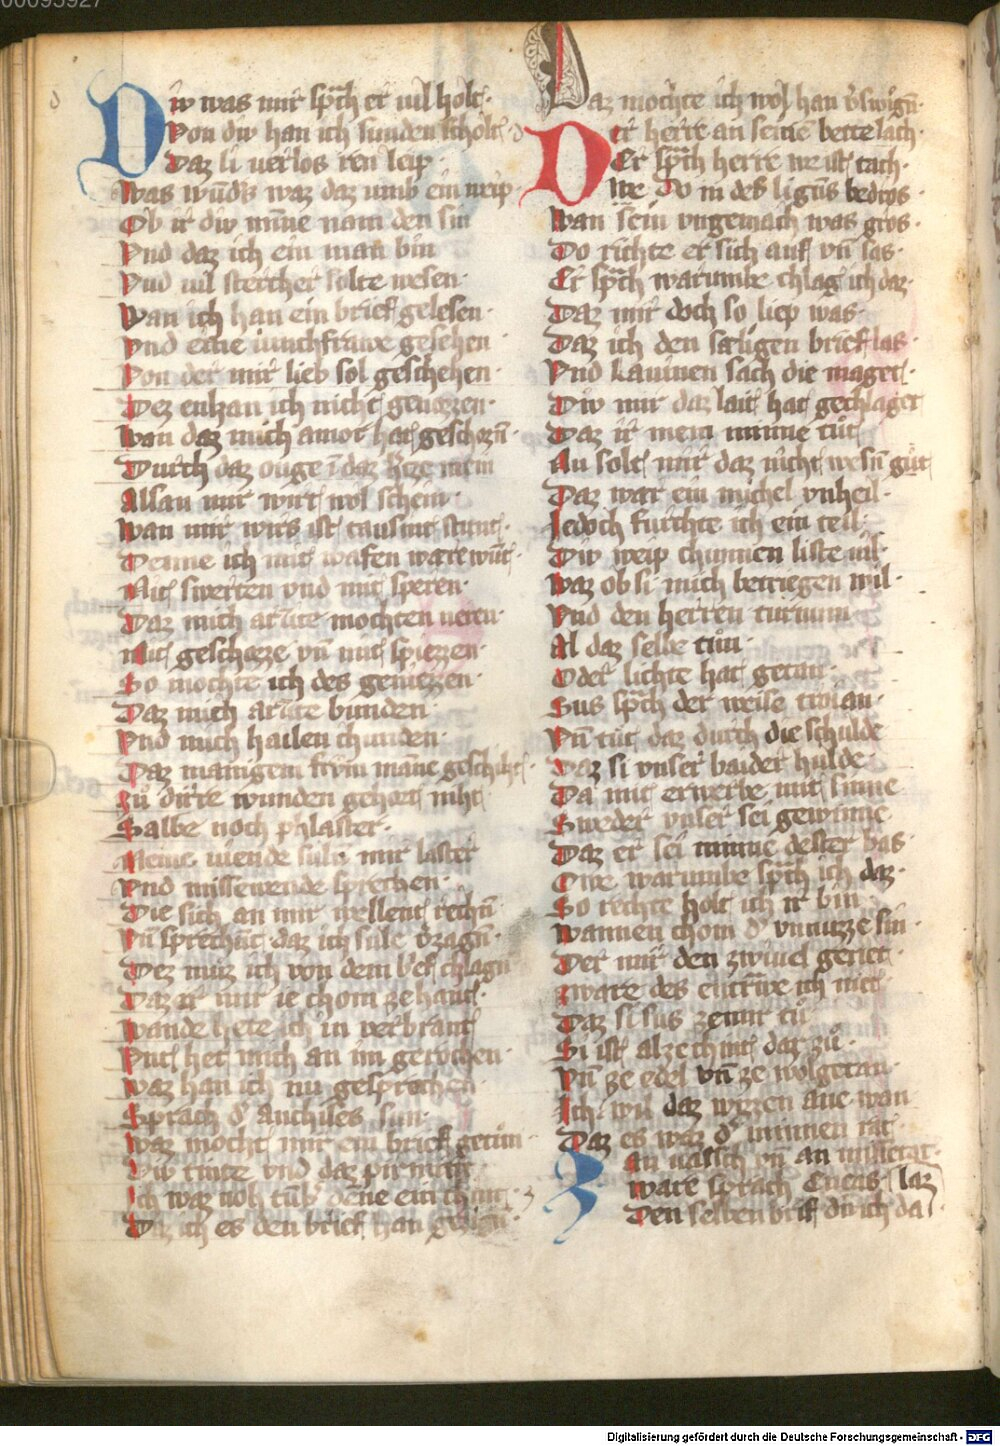 00095927
Diw was mir sprͣch er uil holt·
Von diw han ich sunden scholt·
Daz si verlos ren leip·
Was wūdˢs waz daz umb ein weip
Ob ir diw minne nam den sin
Vnd daz ich ein man bin
Vnd uil stercher solte wesen·
Wan ich han ein brief gelesen·
Vnd eine iunchfrawe gesehen·
Von der mir lieb sol geschehen·
Dez enkan ich nicht genozzen·
Wan daz mich amor hat geschozn̄·
Durch daz ouge ī daz h̄ze mein
Alsan mir wirt wol schein·
Wan mir wirs ist tausint stunt·
Denne ich mit wafen ware wūt·
Mit swerten vnd mit speren·
Daz mich arzte mochten neren·
Mit geschozze vn̄ mit spiezzen·
So mochte ich des geniezzen·
Daz mich arzte bunden·
Vnd mich hailen chunden·
Daz manigem frvm māne geschiht·
Zů dirre wunden gehort niht
Salbe noch phlaster·
Meine viende suln mir laster
Vnd missewende sprechen·
Die sich an mir wellent rechn̄
Vn̄ sprechnt daz ich sule v̄zagn̄·
Dez můz ich von dem b'ef chlagn
Daz er mir ie chom ze hant·
Wande hete ich in verbrant
Vnt het mich an im gerochen·
Waz han ich nu gesprochen
Sprach dˢ anchises sun·
Waz mocht mir ein brief getůn·
Diw tinte vnd daz pirmint
Ich waz noh tūbˢ dēne ein chint·
Daz ich es den brief han gezign̄·
Daz mochte ich wol han v̄swign̄·
Der herre an seinē bette lach·
Er sprͣch herre we ist tach·
We do in des ligēns bedros·
Wan sein vngemach was gros·
Do richte er sich auf vn̄ sas·
Er sprͣch warumbe chlag ich daz·
Daz mir doch so liep was·
Daz ich den sæligen brief las·
Vnd Lauinen sach die maget·
Diw mir daz lait hat gechlaget
Daz ir mein minne tůt
Nu solt mir daz nicht wesn̄ gůt
Daz war ein michel vnheil·
Jedoch furchte ich ein teil·
Diw weip chunnen liste uil·
Waz ob si mich betriegen wil·
Vnd den herren turnum
Al daz selbe tůn·
Oder lichte hat getan·
Sus sprͣch der weise troian·
Vn̄ tůt daz durch die schulde
Daz si vnser baider hulde
Da mit erwerbe mit sinne
Sweder vnser sei gewinne
Daz er sei minne dester bas
Owe warumbe sprͣch ich daz·
So rechte holt ich ir bin
Wannen chom dˢ vnnutze sin·
Der mir den zwiuel geriet·
Zware des entrͣwe ich niet·
Daz si sus zenir tů·
Si ist al ze chint dar zů·
Vn̄ ze edel vn̄ ze wolgetan·
Ich wil daz wizzen ane wan
Daz es waz dˢ minnen rat
An valsch vn̄ an missetat·
Zware sprach Eneas laz
Den selben brif den ich da
Digitalisierung gefördert durch die Deutsche Forschungsgemeinschaft - DFG